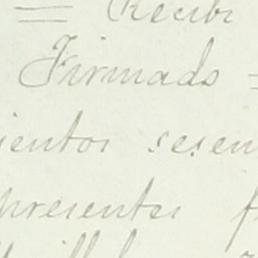 = Recibi
Firmado =
ientos sesen
presentes f